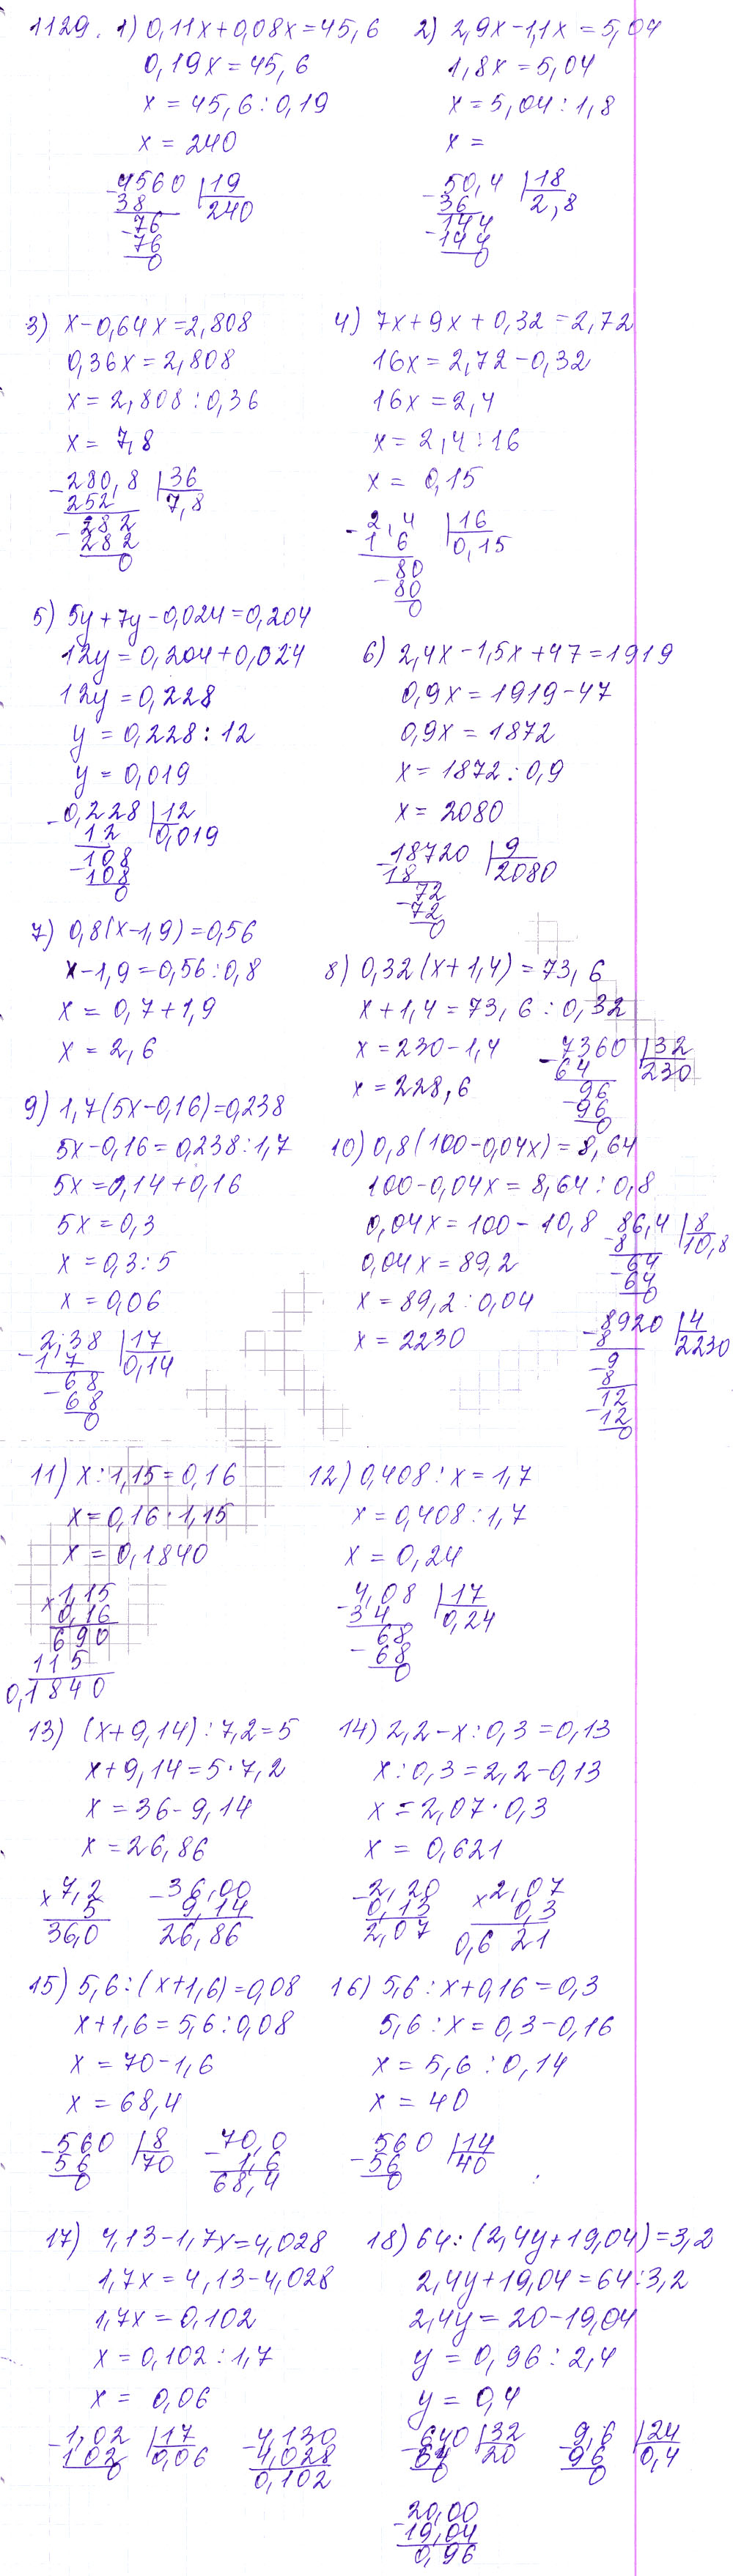 1129. 1) 0,11x+0,08x=45,6
0,19x=45,6
x=45,6:0,19
x=240
-4560 |19
38 240
-76
76
0
2) 2,9x-1,1x=5,04
1,8x=5,04
x=5,04:1,8
x=
-50,4 |18
36 2,8
-144
144
0
3) x-0,64x=2,808
0,36x=2,808
x=2,808:0,36
x=7,8
-280,8 |36
252 7,8
-282
282
0
4) 7x+9x+0,32=2,72
16x=2,72-0,32
16x=2,4
x=2,4:16
x=0,15
-2,4 |16
1 6 0,15
-80
80
0
5) 5y+7y-0,024=0,204
12y=0,204+0,024
12y=0,228
y=0,228:12
y=0,019
-0,228 |12
12 0,019
-108
108
0
6) 2,4x-1,5x+47=1919
0,9x=1919-47
0,9x=1872
x=1872:0,9
x=2080
-18720 |9
18 2080
-72
72
0
7) 0,8(x-1,9)=0,56
x-1,9=0,56:0,8
x=0,7+1,9
x=2,6
8) 0,32(x+1,4)=73,6
x+1,4=73,6:0,32
x=230-1,4
x=228,6
-7360 |32
64 230
-96
96
0
9) 1,7(5x-0,16)=0,238
5x-0,16=0,238:1,7
5x=0,14+0,16
5x=0,3
x=0,3:5
x=0,06
-2,38 |17
1 7 0,14
-68
68
0
10) 0,8(100-0,04x)=8,64
100-0,04x=8,64:0,8
0,04x=100-10,8
0,04x=89,2
x=89,2:0,04
x=2230
-86,4 |8
8 10,8
-64
64
0
-8920 |4
8 2230
-9
8
-12
12
0
11) x:1,15=0,16
x=0,16·1,15
x=0,1840
x1,15
0,16
690
115
0,1840
12) 0,408:x=1,7
x=0,408:1,7
x=0,24
-4,08 |17
3 4 0,24
-68
68
0
13) (x+9,14):7,2=5
x+9,14=5·7,2
x=36-9,14
x=26,86
x7,2
5
36,0
-36,00
9,14
26,86
14) 2,2-x:0,3=0,13
x:0,3=2,2-0,13
x=2,07·0,3
x=0,621
-2,20
0,13
2,07
x2,07
0,3
0,621
15) 5,6:(x+1,6)=0,08
x+1,6=5,6:0,08
x=70-1,6
x=68,4
-560 |8
56 70
0
-70,0
1,6
68,4
16) 5,6:x+0,16=0,3
5,6:x=0,3-0,16
x=5,6:0,14
x=40
-560 |14
56 40
0
17) 4,13-1,7x=4,028
1,7x=4,13-4,028
1,7x=0,102
x=0,102:1,7
x=0,06
-1,02 |17
102 0,06
0
-4,130
4,028
0,102
18) 64:(2,4y+19,04)=3,2
2,4y+19,04=64:3,2
2,4y=20-19,04
y=0,96:2,4
y=0,4
-640 |32
64 20
0
-9,6 |24
96 0,4
0
-20,00
19,04
0,96